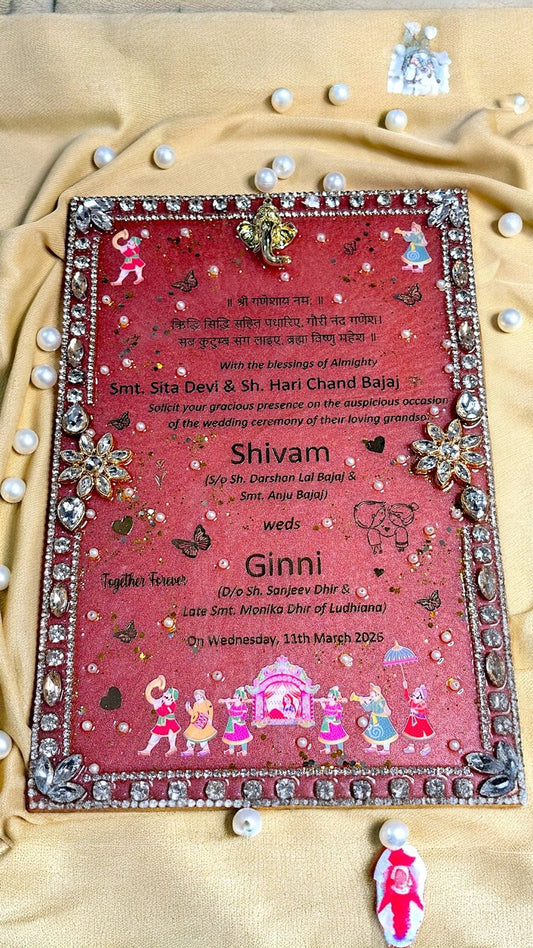 ॥ श्री गणेशाय नमः ॥
ऋिद्धि सिद्धि सहित पधारिए, गौरी नंद गणेश।
सब कुटुम्ब संग लाइए, ब्रह्मा विष्णु महेश ॥
With the blessings of Almighty
Smt. Sita Devi & Sh. Hari Chand Bajaj
Solicit your gracious presence on the auspicious occasion
of the wedding ceremony of their loving grandson
Shivam
(S/o Sh. Darshan Lal Bajaj &
Smt. Anju Bajaj)
weds
Ginni
Together Forever
(D/o Sh. Sanjeev Dhir &
Late Smt. Monika Dhir of Ludhiana)
On Wednesday, 11th March 2026